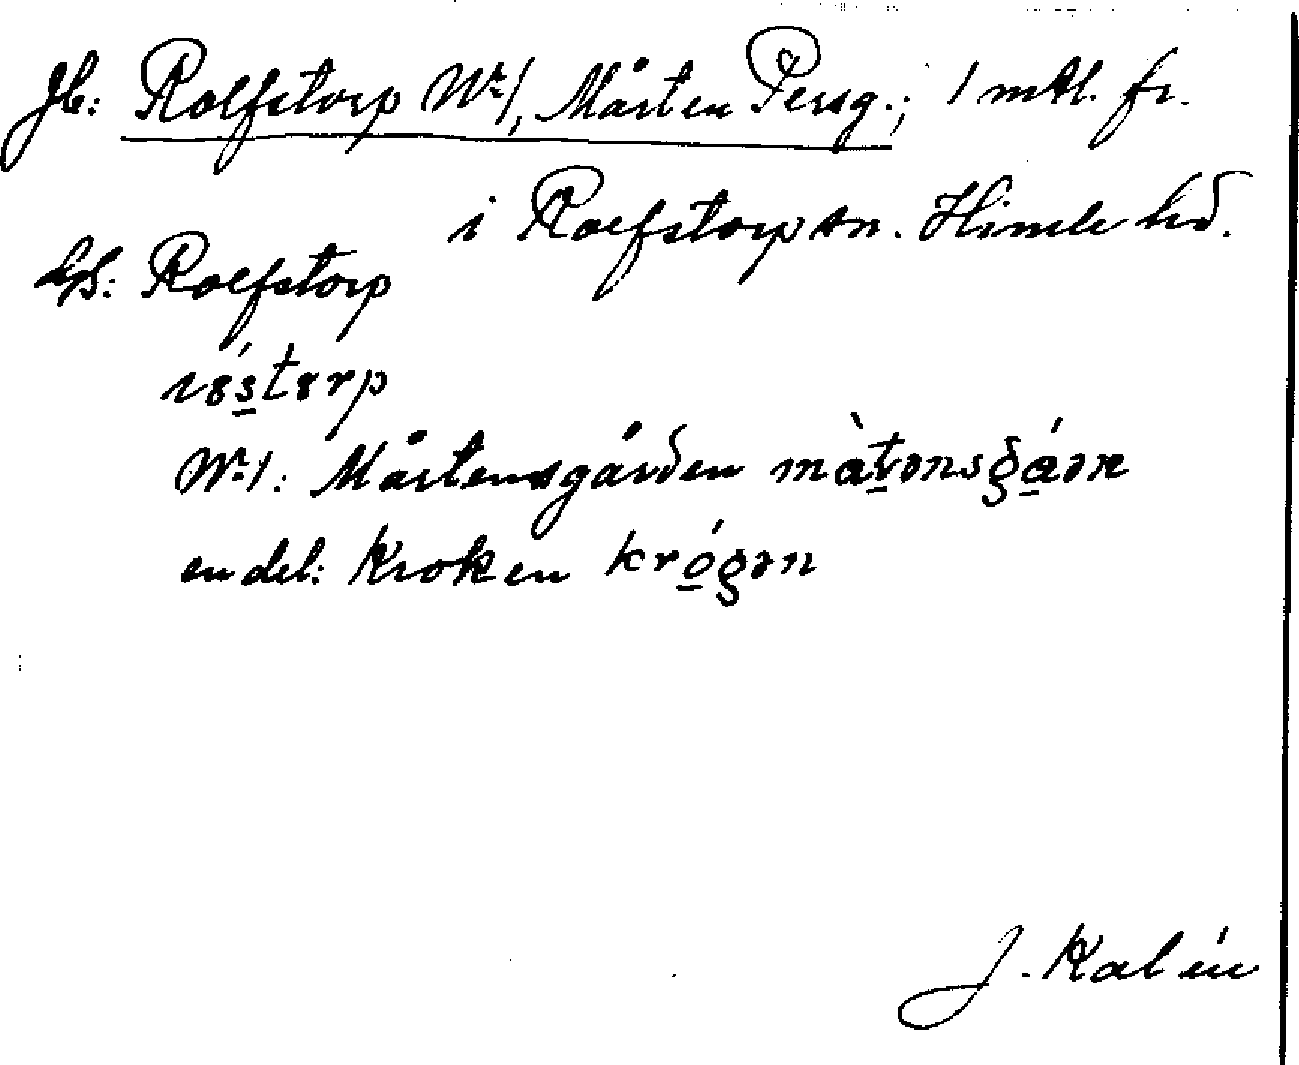 Jb: Rolfstorp Nr 1, Mårten Persg.; 1 mtl. fr.
i Rolfstorp sn. Himle hd.
Rolfstorp
Nr 1. Mårtensgården
en del: Kroken krógən
J. Kalén